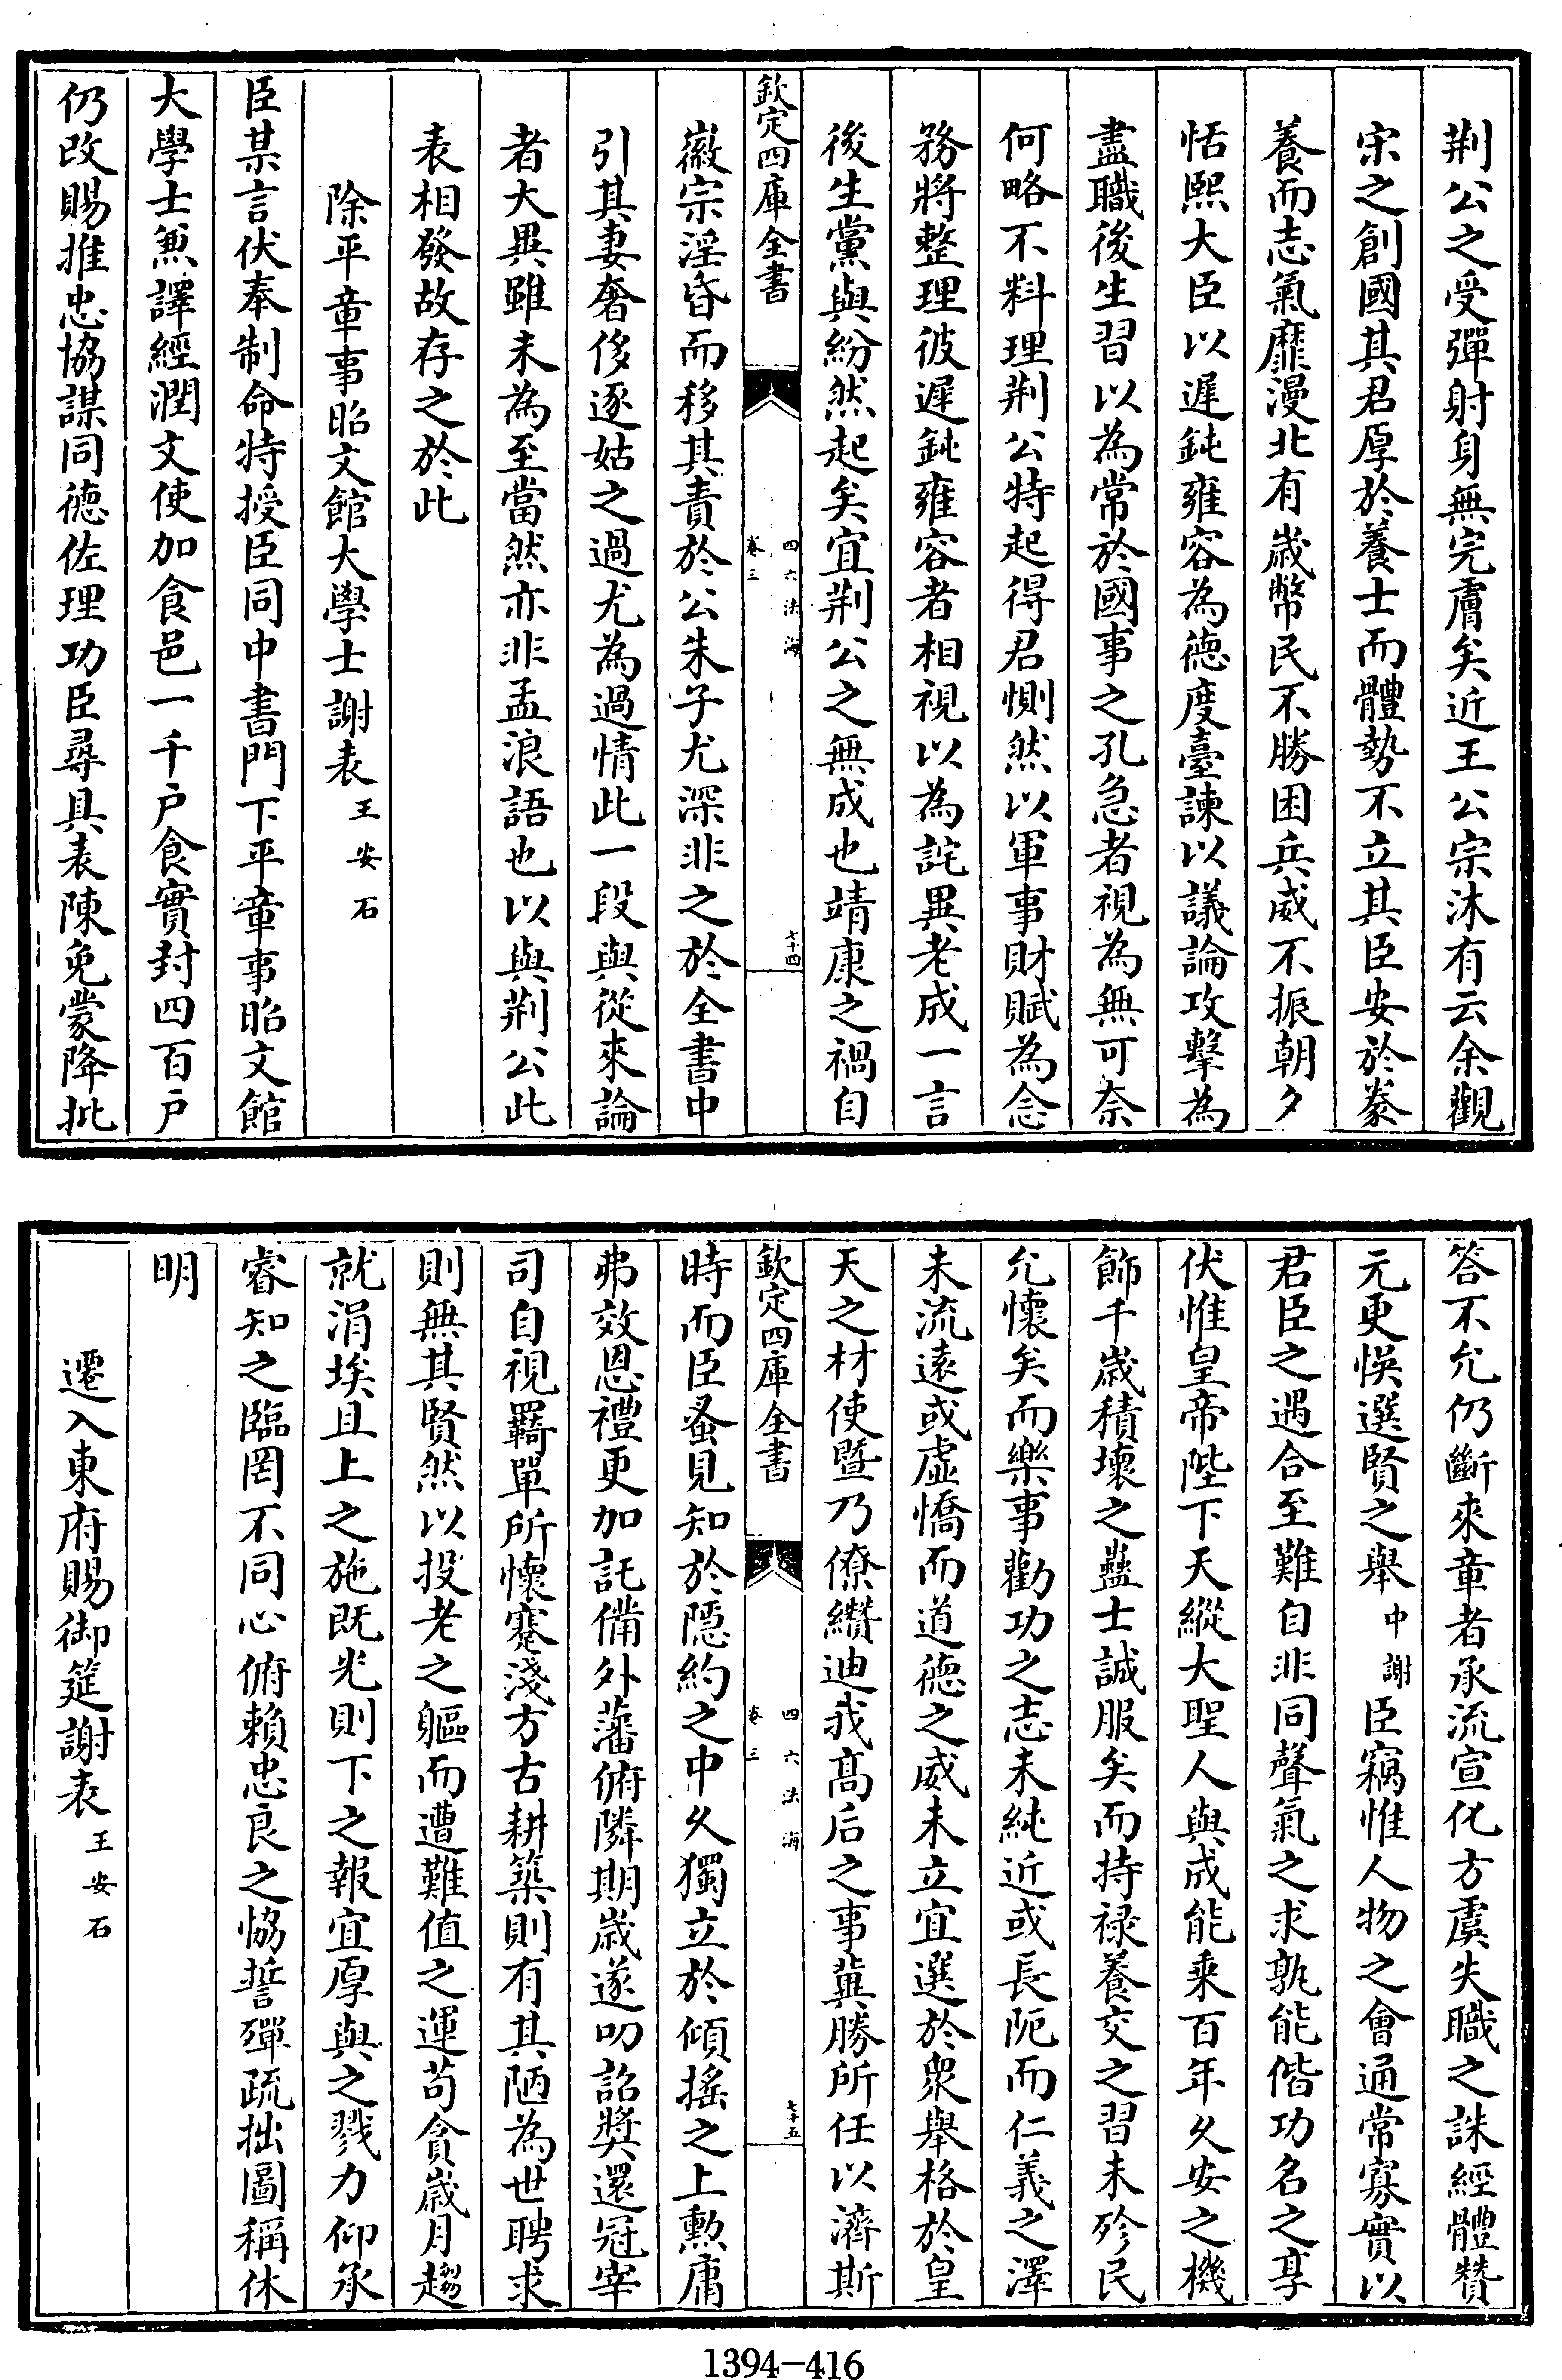 荆公之受彈射身無完膚矣近王公宗沐有云余觀
宋之創國其君厚於養士而體勢不立其臣安於豢
養而志氣靡漫北有嵗幣民不勝困兵威不振朝夕
恬熙大臣以遲鈍雍容為德度臺諫以議論攻擊為
盡職後生習以為常於國事之孔急者視為無可奈
何略不料理荆公特起得君惻然以軍事財賦為念
務將整理彼遲鈍雍容者相視以為詫異老成一言
後生黨與紛然起矣宜荆公之無成也靖康之禍自
欽定四庫全書
四六法海
卷三
七十四
徽宗淫昏而移其責於公朱子尤深非之於全書中
引其妻奢侈逐姑之過尤為過情此一段與從來論
者大異雖未為至當然亦非孟浪語也以與荆公此
表相發故存之於此
除平章事昭文館大學士謝表王安石
臣某言伏奉制命特授臣同中書門下平章事昭文館
大學士兼譯經潤文使加食邑一千户食實封四百户
仍改賜推忠協謀同德佐理功臣尋具表陳免蒙降批
答不允仍斷來章者承流宣化方虞失職之誅經體贊
元更悞選賢之舉中謝臣竊惟人物之會通常寡實以
君臣之遇合至難自非同聲氣之求孰能偕功名之享
伏惟皇帝陛下天縱大聖人與成能乗百年久安之機
飾千嵗積壞之蠱士誠服矣而持禄養交之習未殄民
允懷矣而樂事勸功之志未純近或長阨而仁義之澤
未流遠或虚憍而道德之威未立宜選於衆舉格於皇
天之材使暨乃僚纘迪我高后之事冀勝所任以濟斯
欽定四庫全書
四六法海
卷三
七十五
時而臣蚤見知於隱約之中久獨立於傾摇之上勲庸
弗效恩禮更加託備外藩俯隣期嵗遂叨詔奬還冠宰
司自視羇單所懷蹇淺方古耕築則有其陋為世聘求
則無其賢然以投老之軀而遭難值之運苟貪嵗月趨
就涓埃且上之施既光則下之報宜厚與之戮力仰承
睿知之臨罔不同心俯賴忠良之恊誓殫疏拙圖稱休
明
遷入東府賜御筵謝表王安石
1394-416